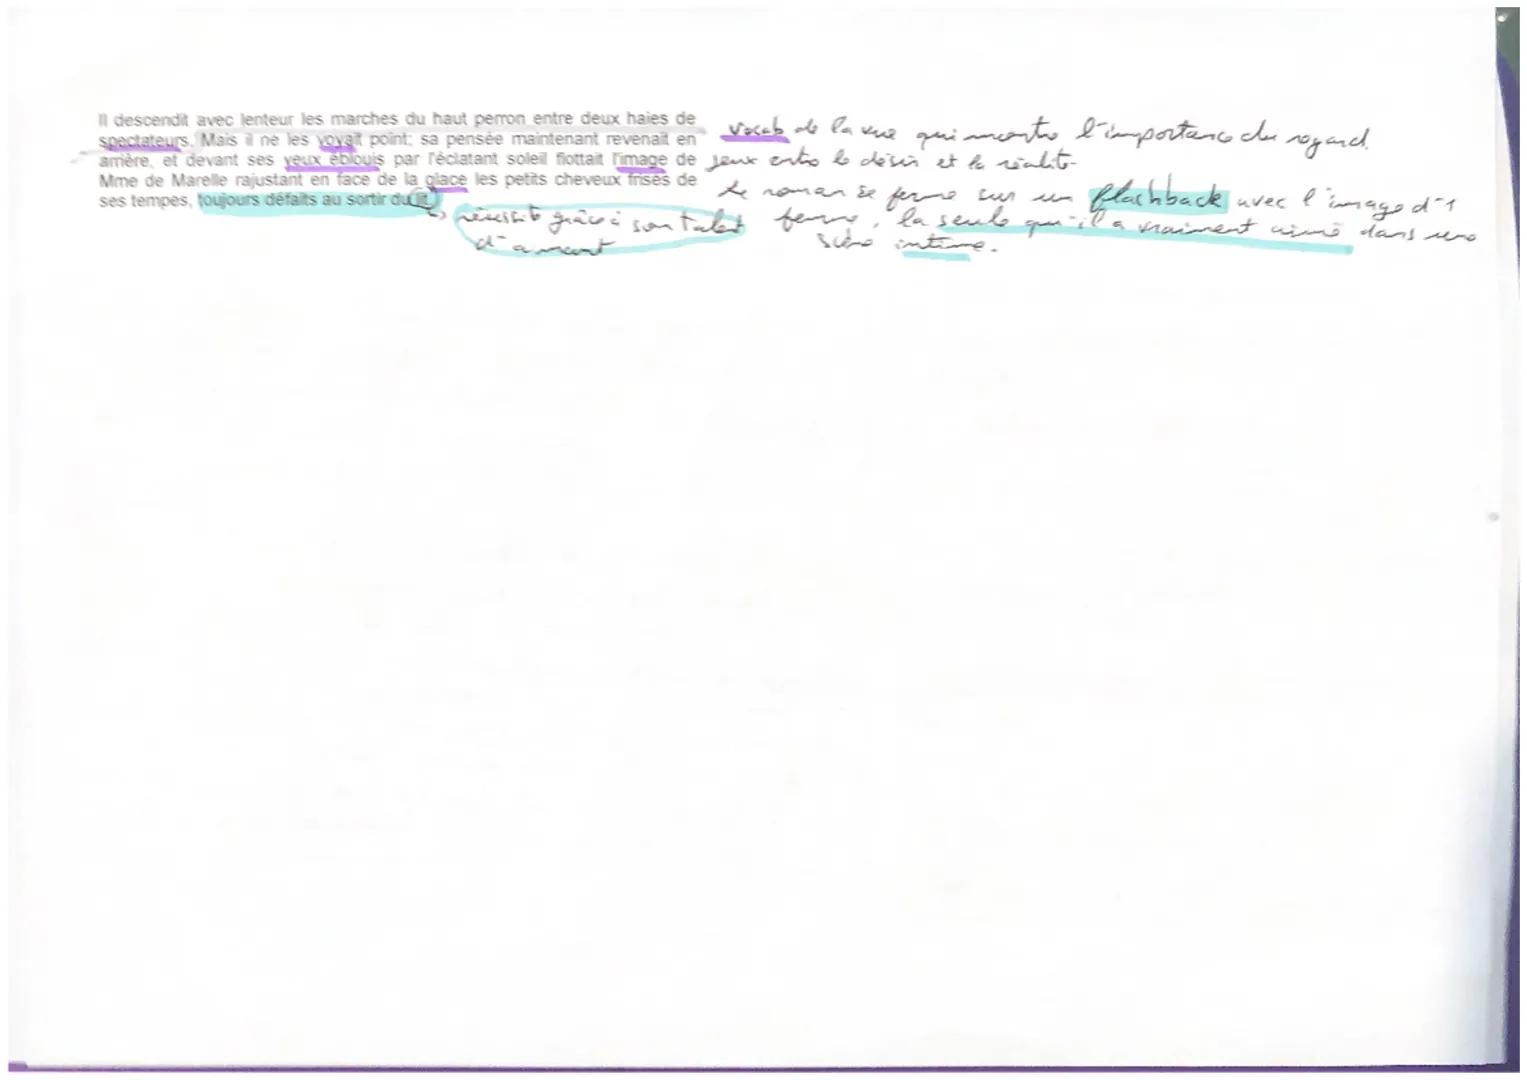 Il descendit avec lenteur les marches du haut perron entre deux haies de
spectateurs. Mais il ne les voyait point; sa pensée maintenant revenait en
arrière, et devant ses yeux éblouis par l'éclatant soleil flottait l'image de
Mme de Marelle rajustant en face de la glace les petits cheveux frisés de
ses tempes, toujours défaits au sortir du lit.
réussite grâce à son talent
d'amant
Vocab de la vue qui montre l'importance du regard.
jeux entre le désir et la réalité.
Le roman se ferme sur un flachback avec l'image d'1
femme, la seule qu'il a vraiment aimé dans une
scène intime.